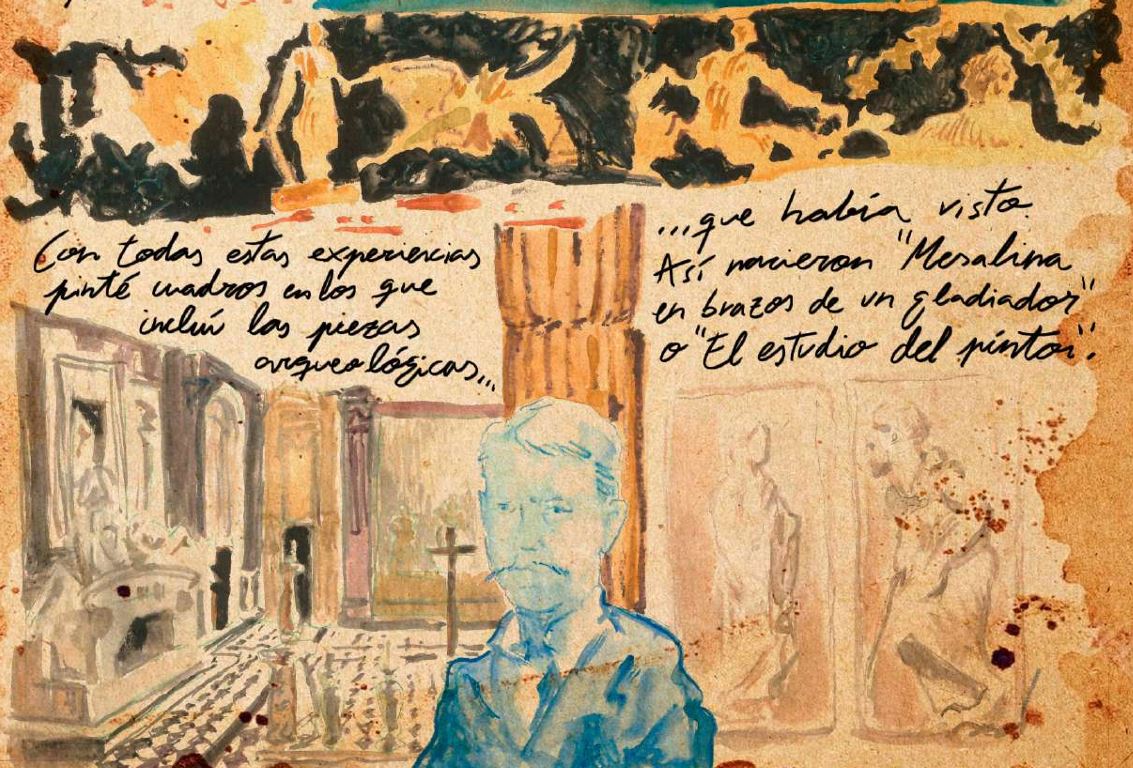 Con todas estas experiencias
pinté cuadros en los que
incluí las piezas
arqueológicas...
...que había visto.
Así nacieron "Mesalina
en brazos de un gladiador"
o "El estudio del pintor".